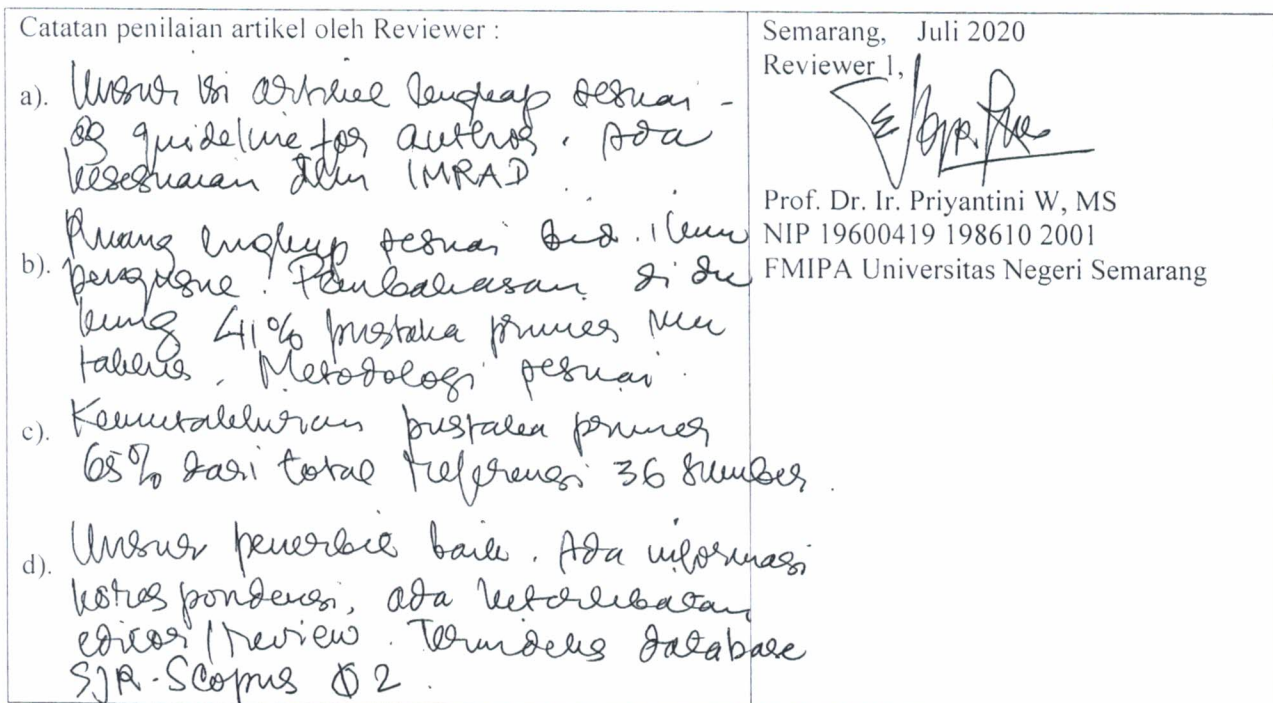 Catatan penilaian artikel oleh Reviewer :
a). Unsur isi artikel lengkap sesuai -
dg guideline for author. Ada
kesesuaian dlm IMRAD.
b). Ruang lingkup sesuai bid. ilmu
pengusul. Pembahasan di du
kung 41% pustaka primer
Metodologi sesuai.
c). Kemutakhiran pustaka primer
65% dari total referensi 36 sumber.
d). Unsur penerbit baik. Ada informasi
korespondensi, ada keterlibatan
editor/review. Terindeks database
SJR-Scopus Q2.
Semarang, Juli 2020
Reviewer 1,
Prof. Dr. Ir. Priyantini W, MS
NIP 19600419 198610 2001
FMIPA Universitas Negeri Semarang